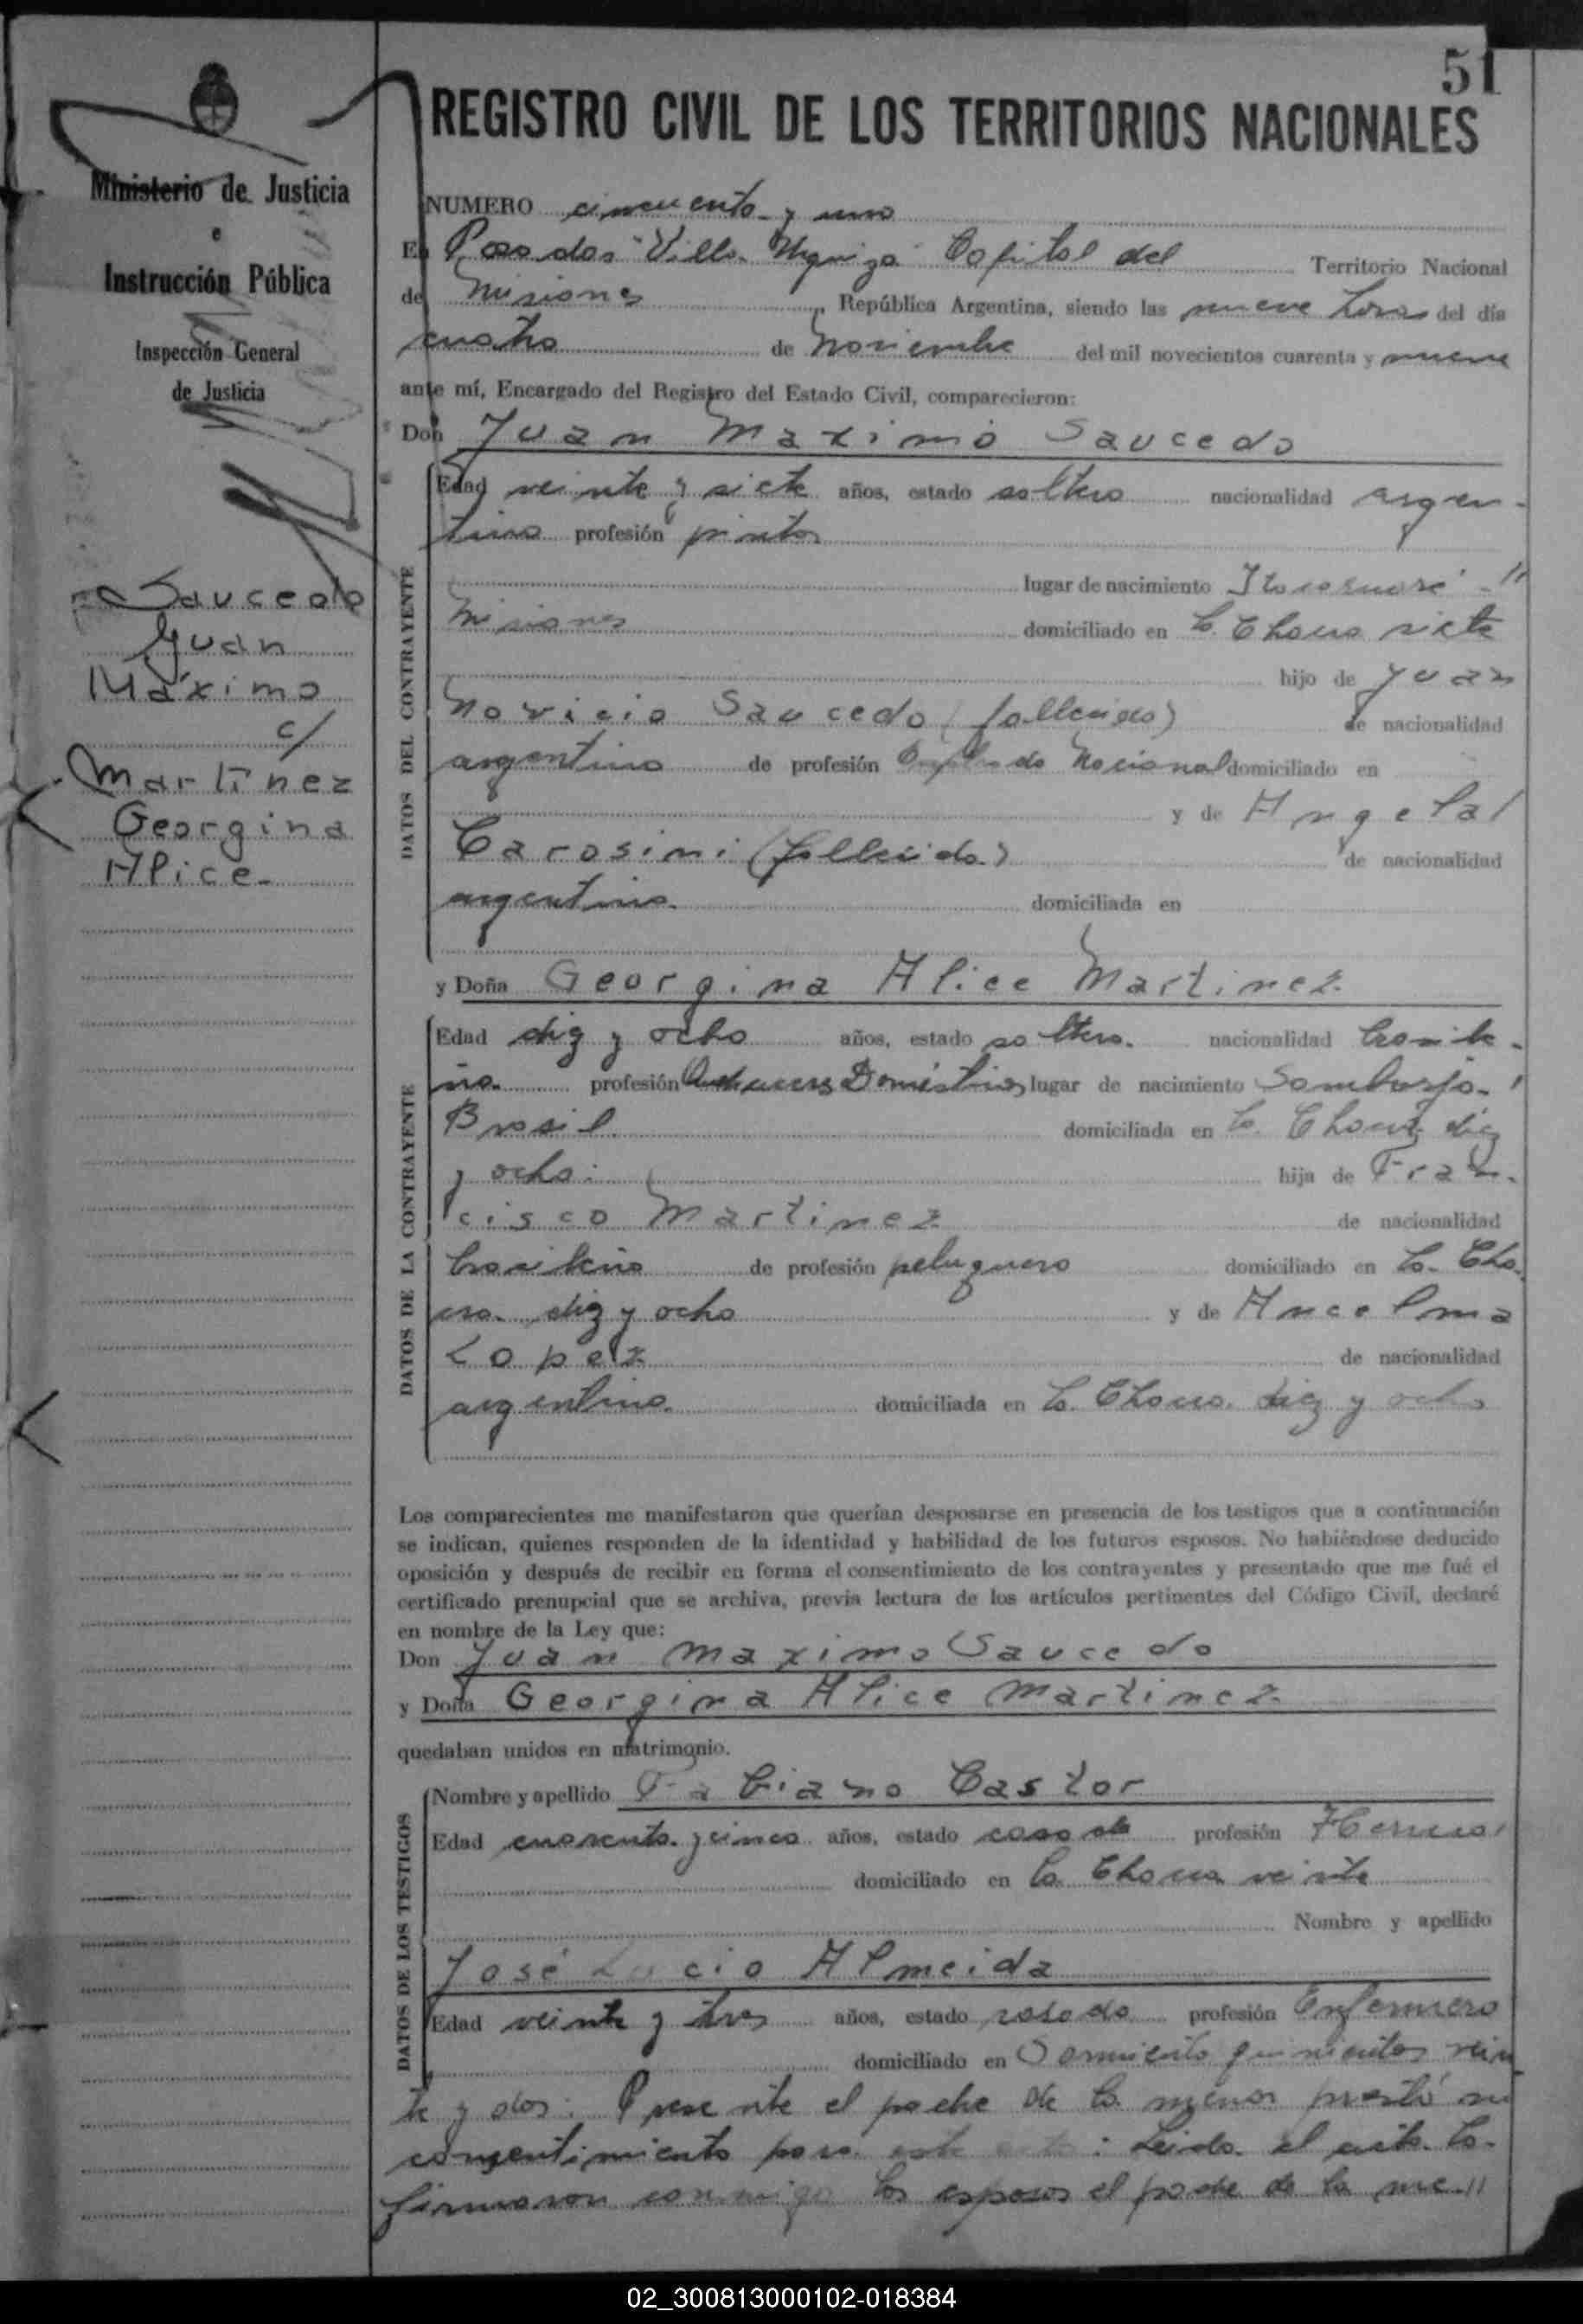 51
REGISTRO CIVIL DE LOS TERRITORIOS NACIONALES
Ministerio de Justicia
e
Instrucción Pública
Inspección General
de Justicia
Saucedo
Juan
Máximo
c/
Martínez
Georgina
Alice.
NUMERO cincuenta y uno
En Posadas "Villa Urquiza" Capital del Territorio Nacional
de Misiones, República Argentina, siendo las nueve horas del día
cuatro de Noviembre del mil novecientos cuarenta y nueve
ante mí, Encargado del Registro del Estado Civil, comparecieron:
Don Juan Maximo Saucedo
DATOS DEL CONTRAYENTE
Edad veinte y siete años, estado soltero nacionalidad argen-
tino profesión pintor
lugar de nacimiento Itacaruaré -"
Misiones domiciliado en La Chacra siete
hijo de Juan
Novicio Saucedo (fallecido) de nacionalidad
argentino de profesión Empleado Nacional domiciliado en
y de Angela/
Carosini (fallecida) de nacionalidad
argentina. domiciliada en
y Doña Georgina Alice Martinez.
DATOS DE LA CONTRAYENTE
Edad diez y ocho años, estado soltera. nacionalidad brasile-
ña. profesión Quehaceres Domésticos lugar de nacimiento Samborja-
Brasil domiciliada en La Chacra diez
y ocho. hija de Fran-
cisco Martinez de nacionalidad
brasileño de profesión peluquero domiciliado en La Cha-
cra diez y ocho y de Ancelma
Lopez de nacionalidad
argentina. domiciliada en La Chacra diez y ocho
Los comparecientes me manifestaron que querían desposarse en presencia de los testigos que a continuación
se indican, quienes responden de la identidad y habilidad de los futuros esposos. No habiéndose deducido
oposición y después de recibir en forma el consentimiento de los contrayentes y presentado que me fué el
certificado prenupcial que se archiva, previa lectura de los artículos pertinentes del Código Civil, declaré
en nombre de la Ley que:
Don Juan Maximo Saucedo
y Doña Georgina Alice Martinez.
quedaban unidos en matrimonio.
DATOS DE LOS TESTIGOS
Nombre y apellido Fabiano Castor
Edad cuarenta y cinco años, estado casado profesión
domiciliado en La Chacra veinte
Nombre y apellido
José Lucio Almeida
Edad veinte y tres años, estado casado profesión Enfermero
domiciliado en Sarmiento quinientos vein
te y dos. Presente el padre de la menor prestó su
consentimiento para este acto: Leída el acta la
firmaron conmigo los esposos el padre de la me-"
02_300813000102-018384